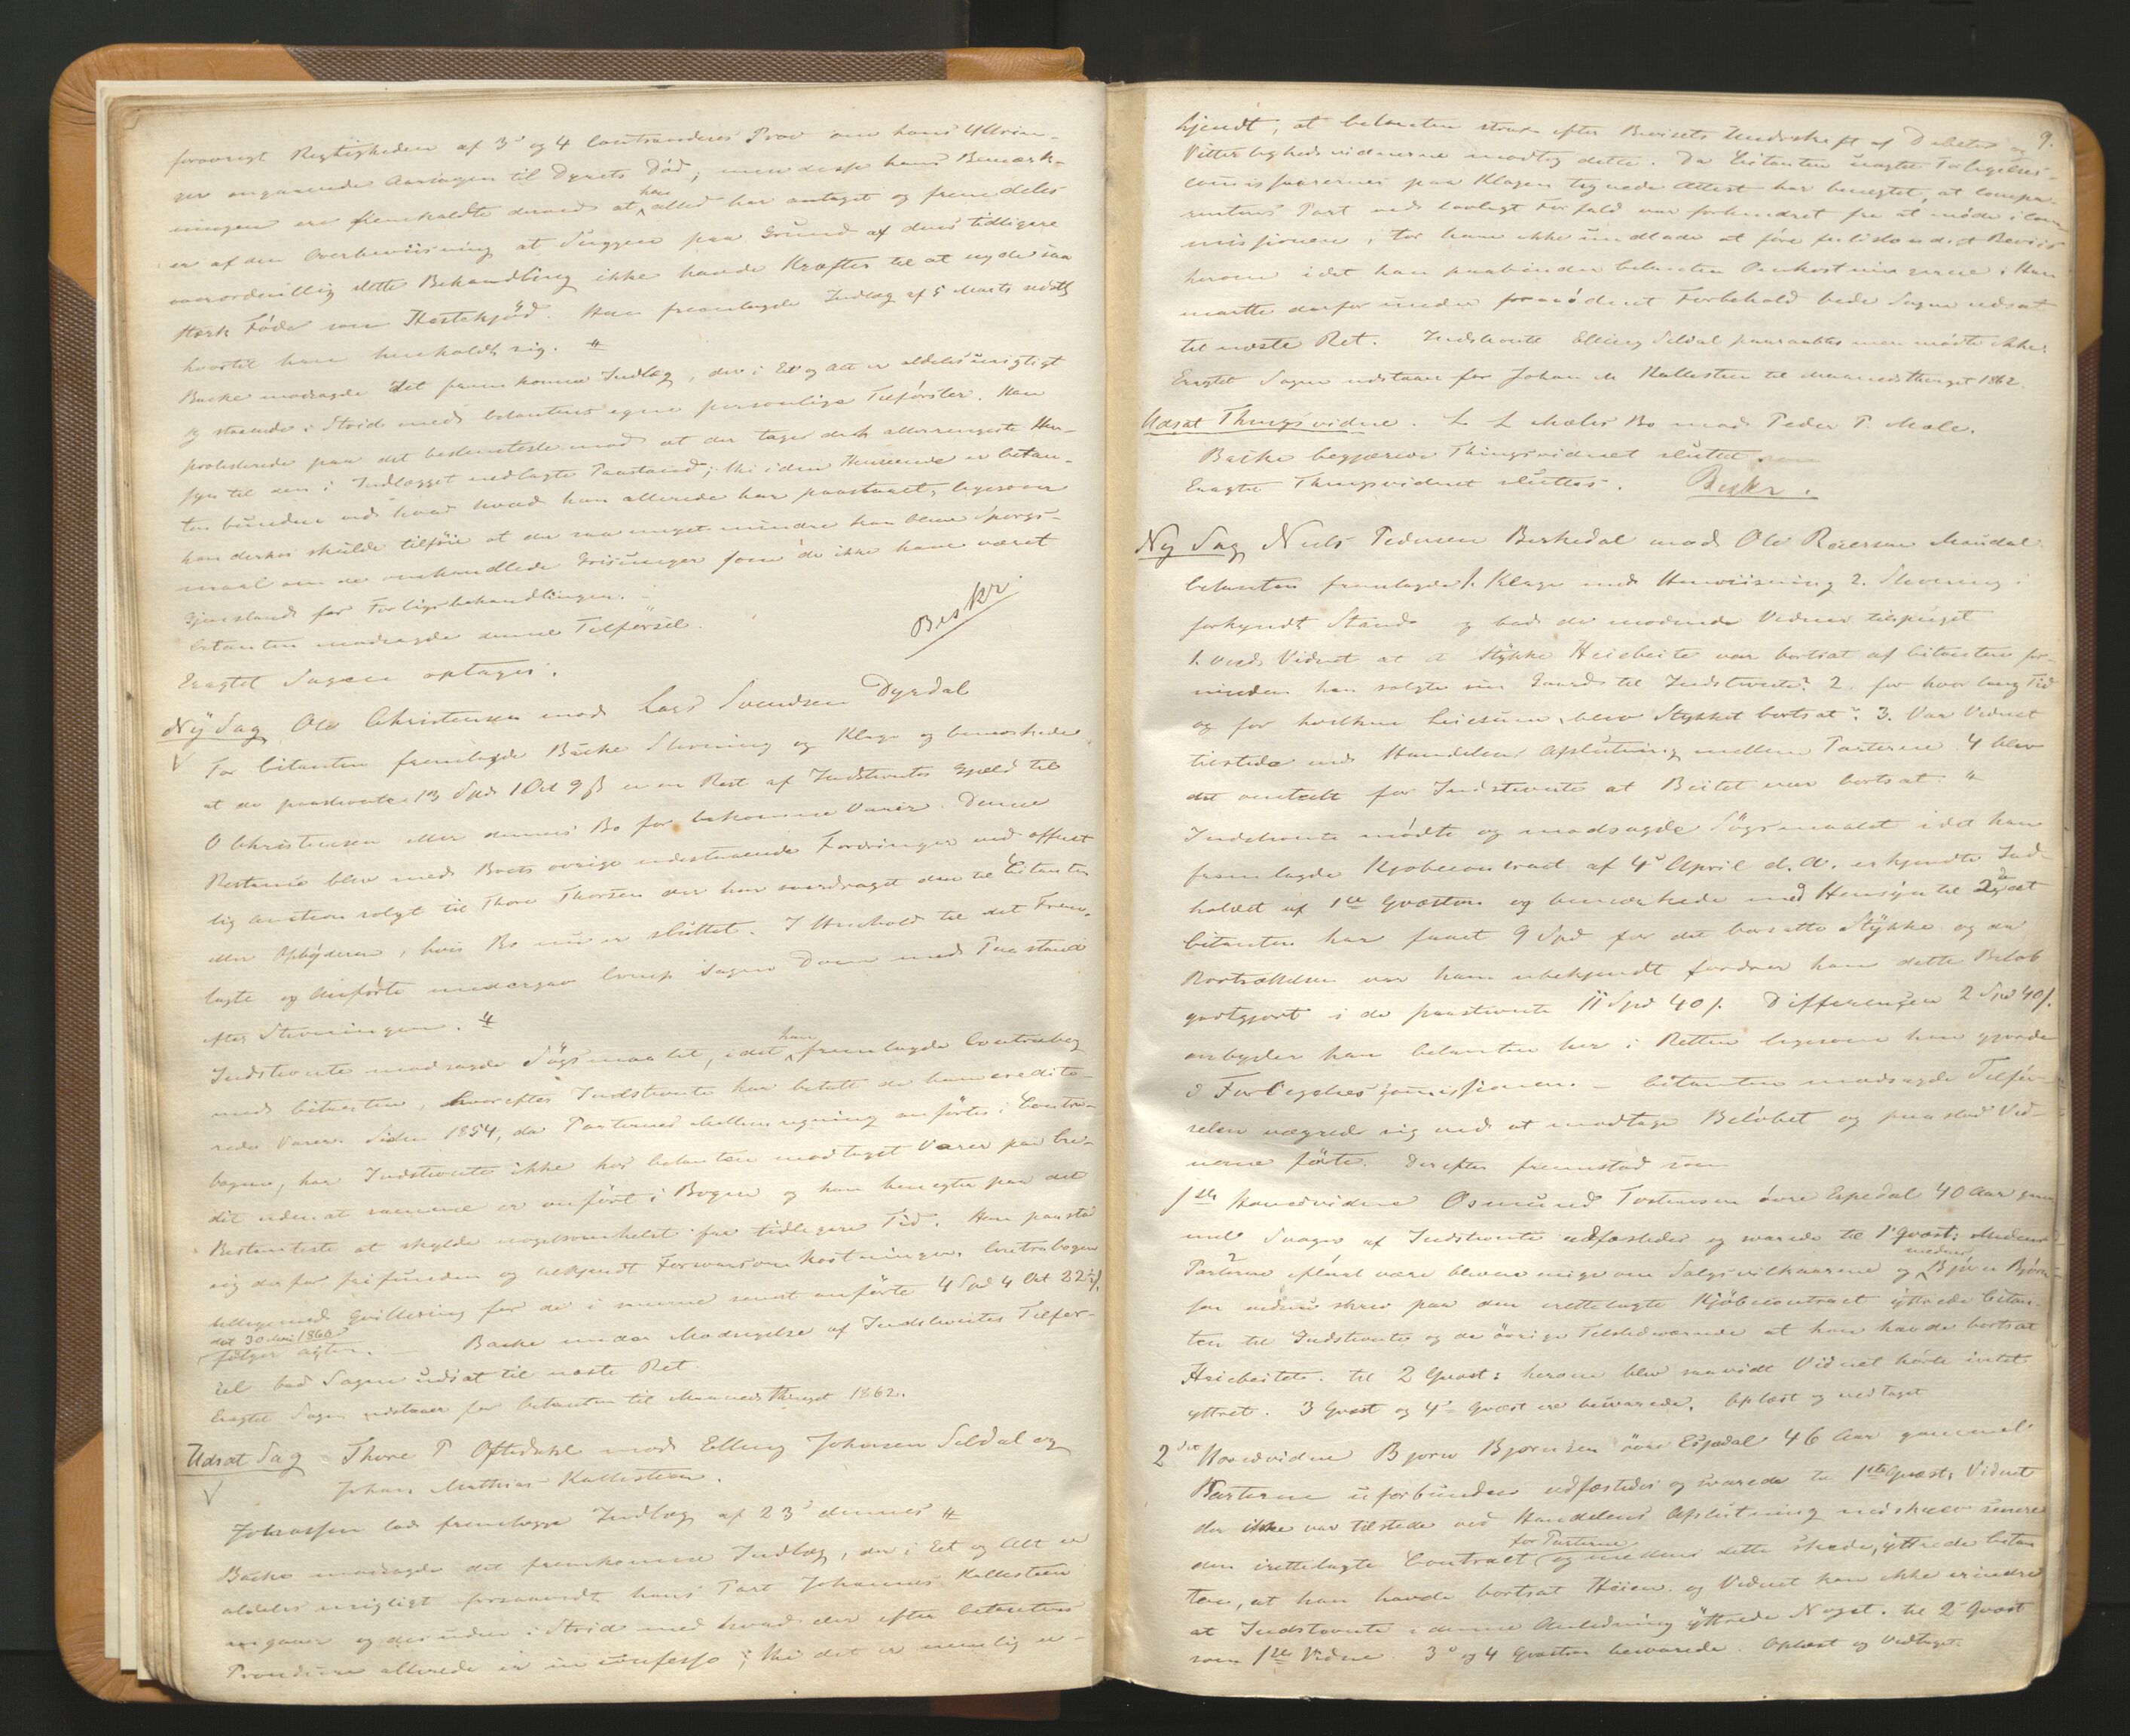 forøvrigt Rigtigheden af 3d og 4 Contravidnes Prov om hans Yttrin-
ger angaaende Aarsagen til Dyrets Død; men disse hans Bemærk-
ninger ere fremkaldte derved at han altid har antaget og fremdeles
er af den Overbeviisning at Suggen paa Grund af dens tidligere
uforordentlig slette Behandling ikke havde Kræfter til at nyde saa
stærk Føde som Hestekjød. Han fremlagde Indlæg af 5 Marts
hvortil han henholdt sig.
Bucke modsagde det fremkomne Indlæg, der i Et og Alt er aldeles urigtigt
og staaende i Strid med Citantens egne personlige Tilførsler. Han
protesterede paa det bestemteste mod at der tages det allerringeste Hen-
syn til den i Indlægget nedlagte Paastand; thi i den Henseende er Citan-
ten bunden ved hvad han allerede har paastaaet, ligesom
han derhos skulde tilføie at der saa meget mindre kan blive Spørgs-
maal om de omhandlede Grisunger som de ikke have været
Gjenstand for Forligsbehandlingen.
Citanten modsagde denne Tilførsel.
Beskr
Eragtet Sagen optages.
Ny Sag Ole Christensen mod Lars Svendsen Dyrdal
For Citanten fremlagde Bucke Stevning og Klage og bemærkede
at de paastevnte 13 Spd 1 Ort 9 ß er en Rest af Indstevntes Gjæld til
O Christensen eller dennes Bo for bekomne Varer. Denne
Restance blev med Boets øvrige udestaaende Fordringer ved offent
lig Auction solgt til Thore Thorsen der har overdraget den til Citanten
eller Opbyderen, hvis Bo nu er sluttet. I Henhold til det Frem-
lagte og Anførte undergav Comp Sagen Dom med Paastand
efter Stevningen.
Indstevnte modsagde Søgsmaalet, idet han fremlagde Contrabog
med Citanten, hvorefter Indstevnte har betalt de ham credite-
rede Varer. Siden 1854, da Parternes Mellemregning anførtes i Contra-
bogen, har Indstevnte ikke hos Citanten modtaget Varer paa Cre-
dit uden at samme er anført i Bogen og han benegter paa det
Bestemteste at skylde nogetsomhelst fra tidligere Tid. Han paastod
sig derfor frifunden og tilkjendt Forsvarsomkostninger. Contrabogen
tilligemed Qvittering for de i samme senest anførte 4 Spd 4 Ort 22½ ß
dat 30 Mai 1860
følger agten. — Bucke under Modsigelse af Indstevntes Tilfør-
sel bad Sagen udsat til næste Ret.
Eragtet Sagen udstaaer for Citanten til Maanedsthinget 1862.
Udsat Sag Thore P Oftedahl mod Elling Johnsen Seldal og
Johan Mathias Kallesteen.
Johnssen lod fremlægge Indlæg af 23d dennes
Bucke modsagde det fremkomne Indlæg, der i Et og Alt er
aldeles urigtigt forsaavidt hans Part Johannes Kallesteen
angaaer og desuden i Strid med hvad der efter Citantens
Procedure allerede er in confesso; thi det er nemlig er-
9.
kjendt, at Citanten strax efter Bevisets Underskrift af Debitor og
Vitterlighedsvidnerne modtog dette. Da Citanten uagtet Forligelses-
commissairernes paa Klagen tegnede Attest har benegtet, at Compa-
rentens Part ved lovligt Forfald var forhindret fra at møde i Com
missionen, tør han ikke undlade at føre fuldstændigt Beviis
herom idet han paabinder Citanten Omkostningerne. Han
maatte derfor under fornødent Forbehold bede Sagen udsat
til næste Ret. Indstevnte Elling Seldal paaraabtes men mødte ikke.
Eragtet Sagen udstaaer for Johan M Kallesteen til Maanedsthinget 1862.
Udsat Thingsvidne. L L Mæles Bo mod Peder P. Mæle.
Bucke begjærede Thingsvidnet sluttet
Eragtet Thingsvidnet sluttes. Beskr.
Ny Sag Niels Pedersen Birkedal mod Ole Reiersen Maudal
Citanten fremlagde 1. Klage med Henviisning 2. Stevning i
forkyndt Stand og bad de mødende Vidner tilspurgt
1. Veed Vidnet at et Stykke Heiebeite var bortsat af Citanten for-
inden han solgte sin Gaard til Indstevnte? 2. for hvor lang Tid
og for hvilken Leiesum blev Stykket bortsat? 3. Var Vidnet
tilstede ved Handelens Afslutning mellem Parterne 4 blev
det omtalt for Indstevnte at Beitet var bortsat.
Indstevnte mødte og modsagde Søgsmaalet idet han
fremlagde Kjøbecontract af 4d April d. A. erkjendte Ind-
holdet af 1ste Qvæstion og bemærkede med Hensyn til 2det at
Citanten har faaet 9 Spd for det bortsatte Stykke og da
Bortsættelsen var ham ubekjendt fordrer han dette Beløb
godtgjort i de paastevnte 11 Spd 40 ß. Differencen 2 Spd 40 ß.
anbyder han Citanten her i Retten ligesom han gjorde
i Forligelsescommissionen. — Citanten modsagde Tilfør-
selen vægrede sig ved at modtage Beløbet og paastod Vid-
nerne førte. Derefter fremstod som
1ste Hovedvidne Osmund Tostensen øvre Espedal 40 Aar gam
mel Svoger af Indstevnte edfæstedes og svarede til 1 Qvæst: Medens
Parterne efterat være blevne enige om Salgsvilkaarene og medens Bjørn Bjørn
sen nedenskrev paa den irettelagte Kjøbecontract yttrede Citan-
ten til Indstevnte og de øvrige Tilstedeværende at han havde bortsat
Heiebeitet. til 2 Qvæst: herom blev saavidt Vidnet hørte intet
yttret. 3 Qvæst og 4d Qvæst ere besvarede. Oplæst og vedtaget
2det Hovedvidne Bjørn Bjørnsen øvre Espedal 46 Aar gammel
Parterne uforbunden edfæstedes og svarede til 1ste Qvæst: Vidnet
der ikke var tilstede ved Handelens Afslutning nedskrev senere
for Parterne
den irettelagte Contract og medens dette skede, yttrede Citan
ten, at han havde bortsat Heien. og Vidnet kan ikke erindre
at Indstevnte i denne Anledning yttrede Noget. til 2 Qvæst
som 1ste Vidne. 3d og 4 Qvæstion besvarede. Oplæst og Vedtaget.